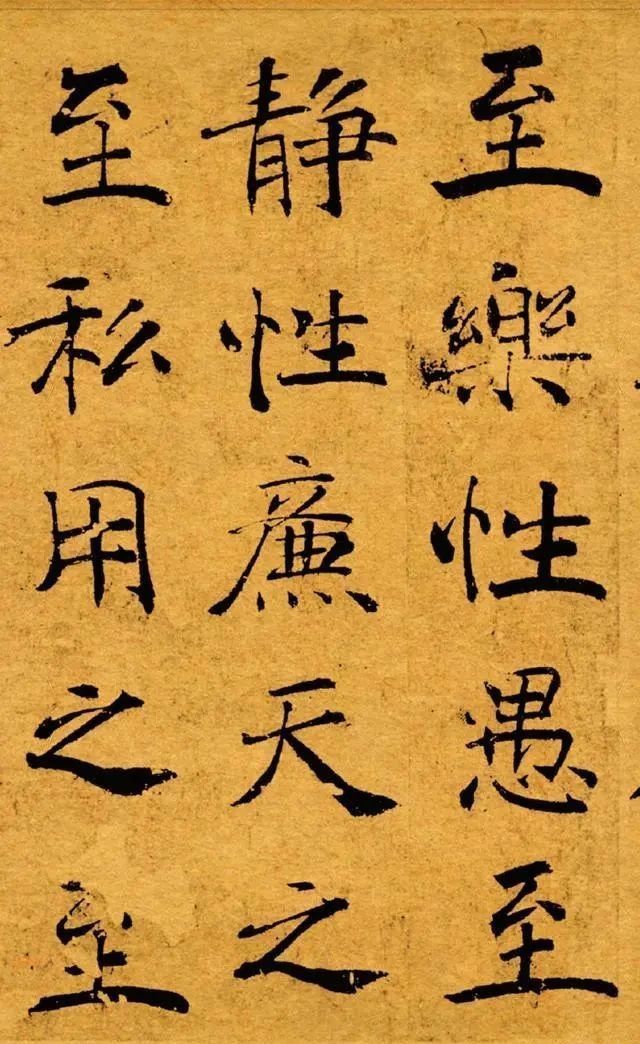 至樂性愚至
静性廉天之
至私用之至